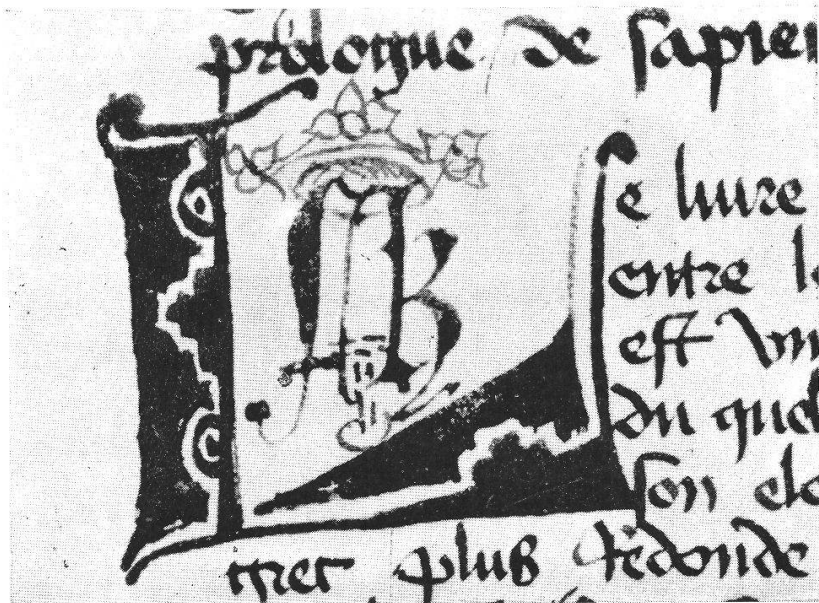 prologue de sapien
Le livre
entre l
est vn
du quel
son elo
plus redonde